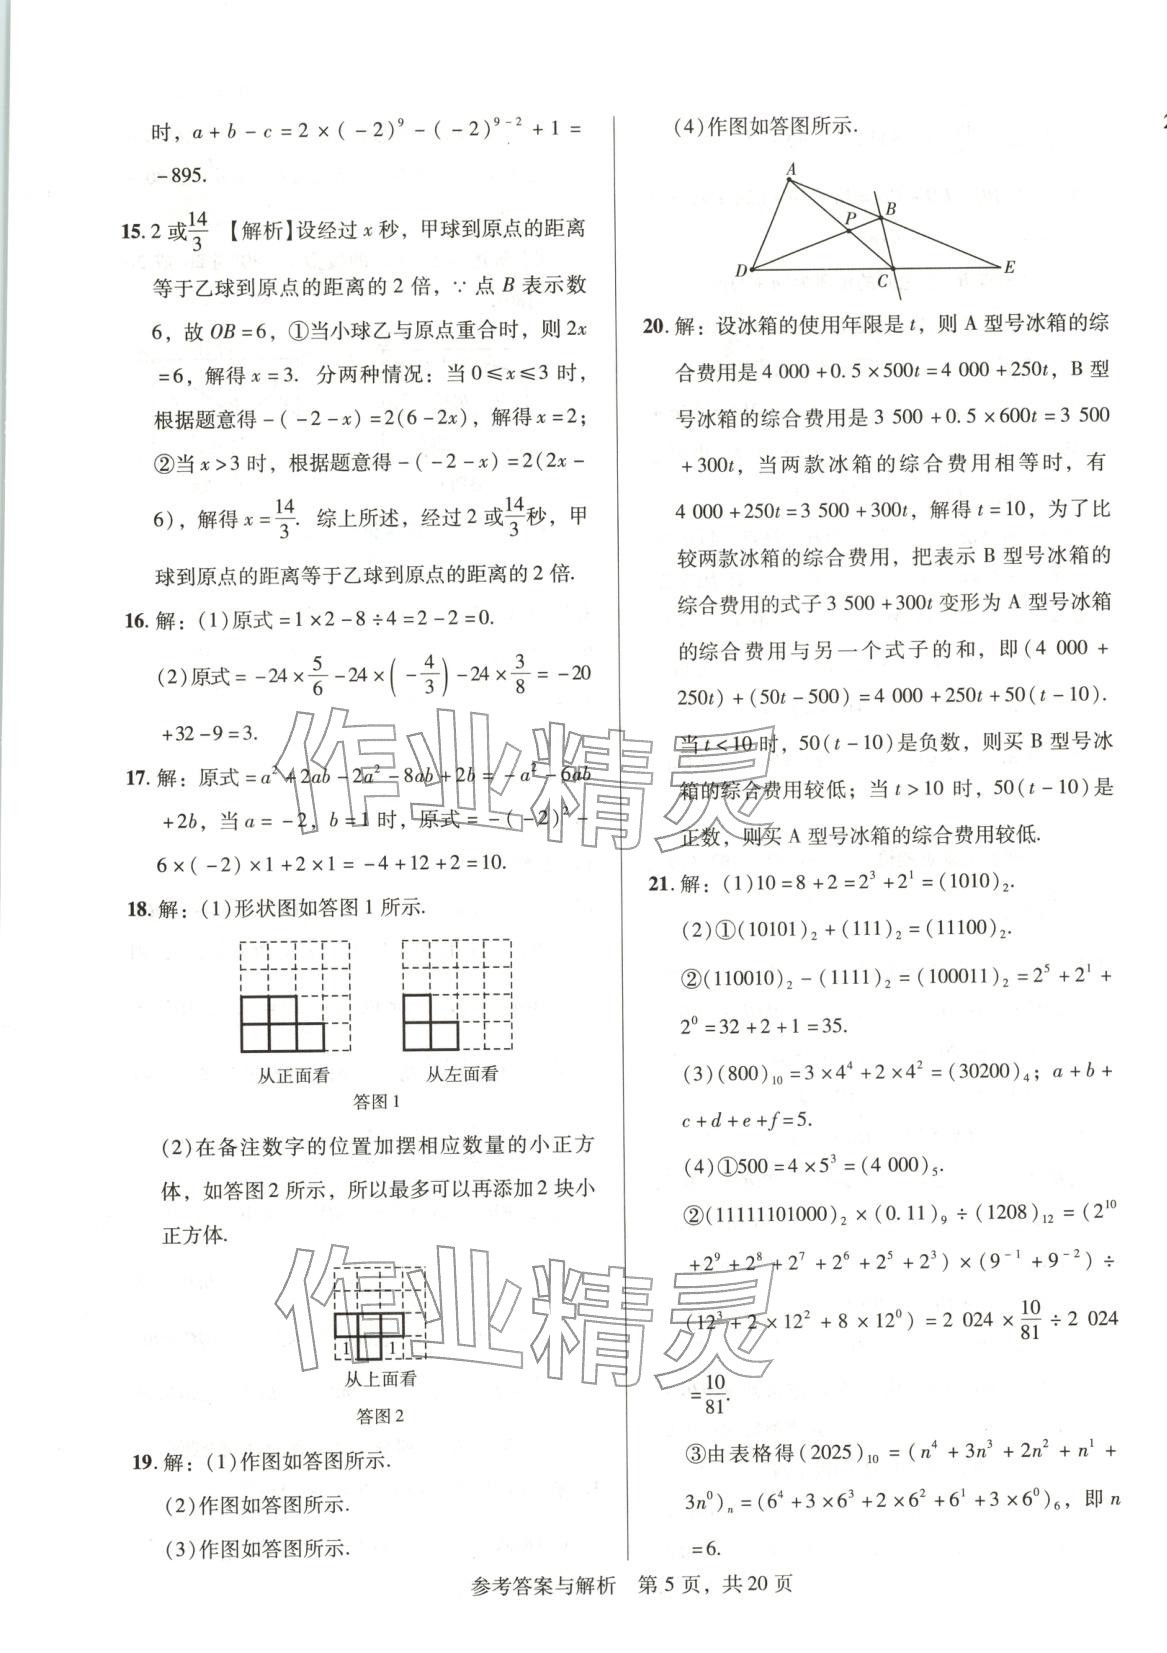 时，a + b - c = 2 × ( - 2)⁹ - ( - 2)⁹⁻² + 1 =
- 895.
15. 2 或 14/3 【解析】设经过 x 秒，甲球到原点的距离
等于乙球到原点的距离的 2 倍，∵ 点 B 表示数
6，故 OB = 6，①当小球乙与原点重合时，则 2x
= 6，解得 x = 3. 分两种情况：当 0 ≤ x ≤ 3 时，
根据题意得 - ( - 2 - x) = 2(6 - 2x)，解得 x = 2；
②当 x > 3 时，根据题意得 - ( - 2 - x) = 2(2x -
6)，解得 x = 14/3. 综上所述，经过 2 或 14/3 秒，甲
球到原点的距离等于乙球到原点的距离的 2 倍.
16. 解：(1)原式 = 1 × 2 - 8 ÷ 4 = 2 - 2 = 0.
(2)原式 = - 24 × 5/6 - 24 × ( - 4/3 ) - 24 × 3/8 = - 20
+ 32 - 9 = 3.
17. 解：原式 = a² + 2ab - 2a² - 8ab + 2b = - a² - 6ab
+ 2b，当 a = - 2，b = 1 时，原式 = - ( - 2)² -
6 × ( - 2) × 1 + 2 × 1 = - 4 + 12 + 2 = 10.
18. 解：(1)形状图如答图 1 所示.
从正面看 从左面看
答图 1
(2)在备注数字的位置加摆相应数量的小正方
体，如答图 2 所示，所以最多可以再添加 2 块小
正方体.
1 1
从上面看
答图 2
19. 解：(1)作图如答图所示.
(2)作图如答图所示.
(3)作图如答图所示.
(4)作图如答图所示.
A
P B
D C E
20. 解：设冰箱的使用年限是 t，则 A 型号冰箱的综
合费用是 4 000 + 0. 5 × 500t = 4 000 + 250t，B 型
号冰箱的综合费用是 3 500 + 0. 5 × 600t = 3 500
+ 300t，当两款冰箱的综合费用相等时，有
4 000 + 250t = 3 500 + 300t，解得 t = 10，为了比
较两款冰箱的综合费用，把表示 B 型号冰箱的
综合费用的式子 3 500 + 300t 变形为 A 型号冰箱
的综合费用与另一个式子的和，即(4 000 +
250t) + (50t - 500) = 4 000 + 250t + 50(t - 10).
当 t < 10 时，50(t - 10)是负数，则买 B 型号冰
箱的综合费用较低；当 t > 10 时，50(t - 10)是
正数，则买 A 型号冰箱的综合费用较低.
21. 解：(1)10 = 8 + 2 = 2³ + 2¹ = (1010)₂.
(2)①(10101)₂ + (111)₂ = (11100)₂.
②(110010)₂ - (1111)₂ = (100011)₂ = 2⁵ + 2¹ +
2⁰ = 32 + 2 + 1 = 35.
(3)(800)₁₀ = 3 × 4⁴ + 2 × 4² = (30200)₄；a + b +
c + d + e + f = 5.
(4)①500 = 4 × 5³ = (4 000)₅.
②(11111101000)₂ × (0. 11)₉ ÷ (1208)₁₂ = (2¹⁰
+ 2⁹ + 2⁸ + 2⁷ + 2⁶ + 2⁵ + 2³) × (9⁻¹ + 9⁻²) ÷
(12³ + 2 × 12² + 8 × 12⁰) = 2 024 × 10/81 ÷ 2 024
= 10/81.
③由表格得(2025)₁₀ = (n⁴ + 3n³ + 2n² + n¹ +
3n⁰)ₙ = (6⁴ + 3 × 6³ + 2 × 6² + 6¹ + 3 × 6⁰)₆，即 n
= 6.
作业精灵
作业精灵
参考答案与解析 第 5 页，共 20 页